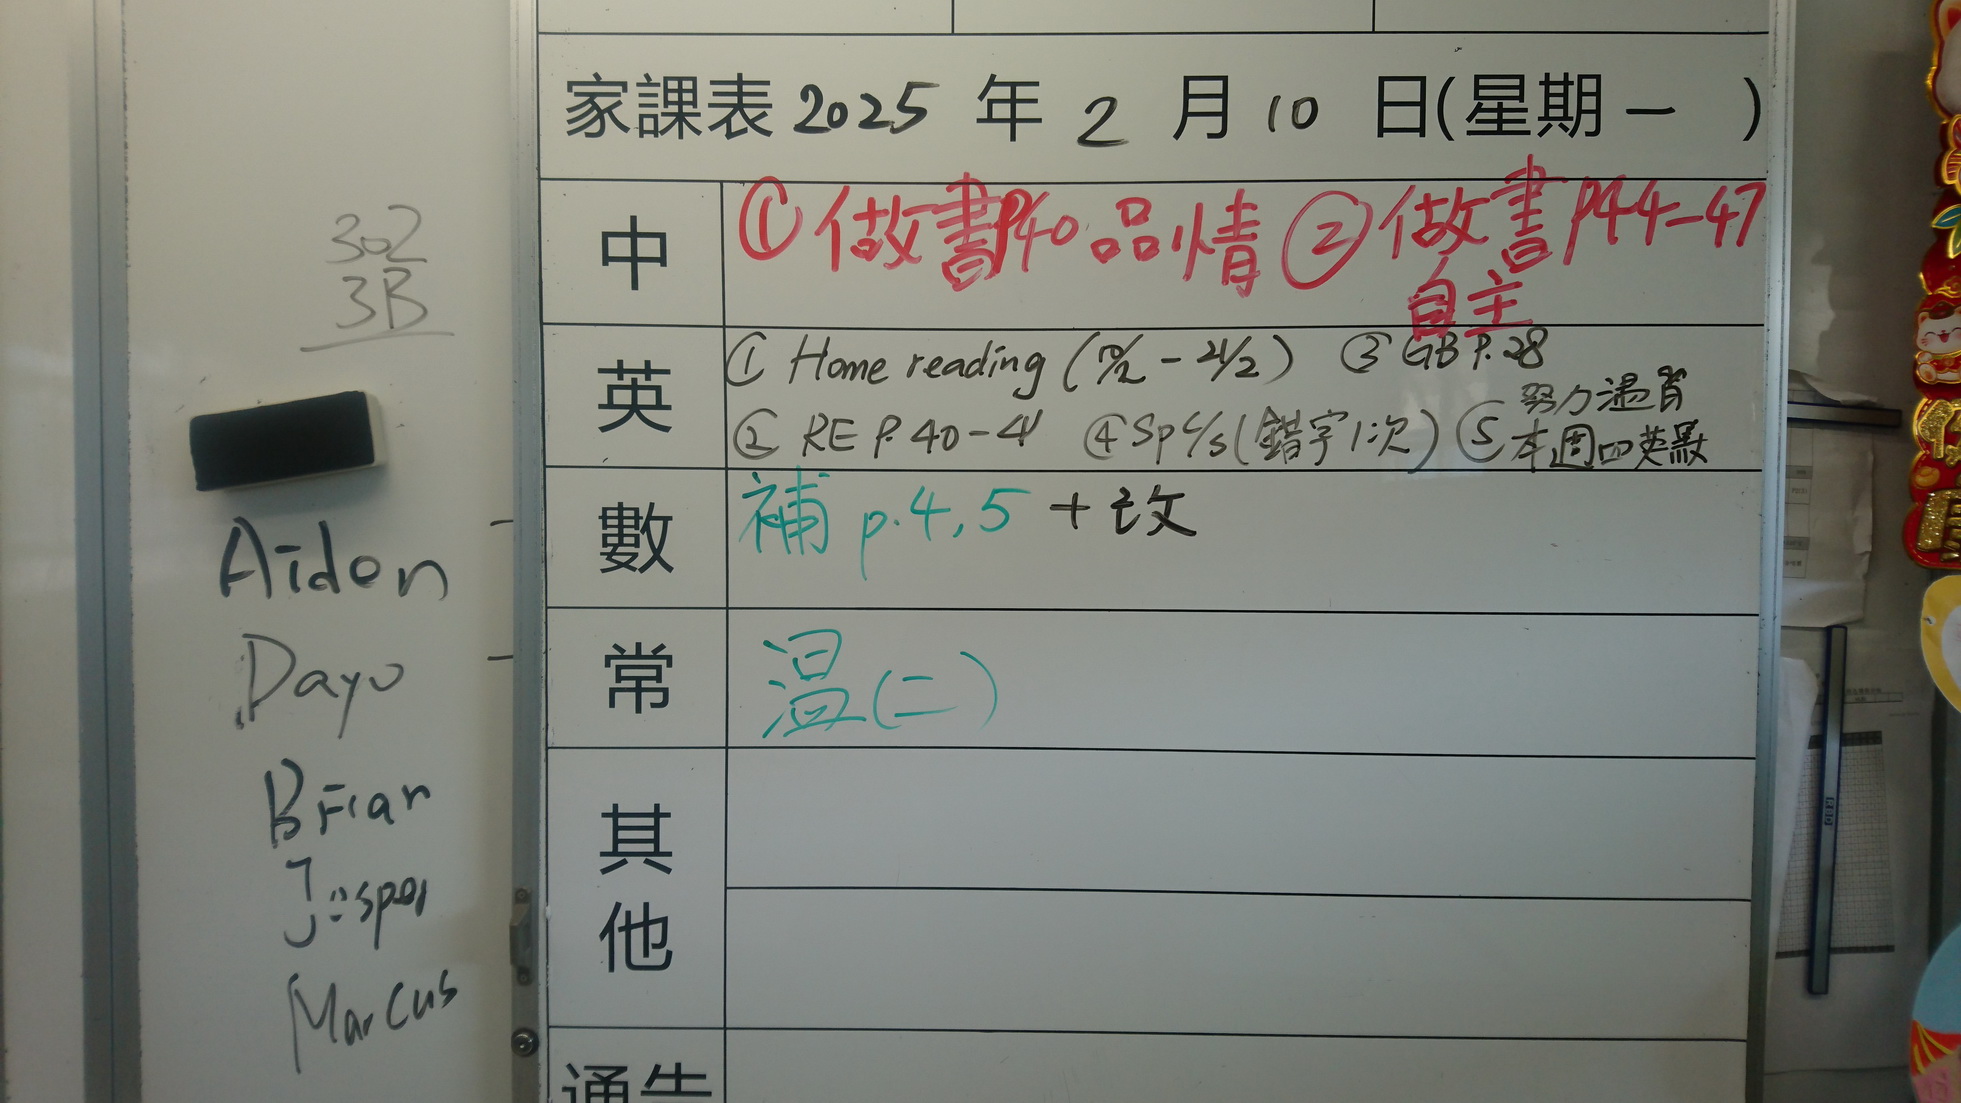 家課表 2025 年 2 月 10 日(星期一 )
302
3B
中
①做書P40品情 ②做書P44-47
自主
英
① Home reading (10/2 - 21/2) ③ GB P.28
② RE P.40-41 ④ Sp c/s (錯字1次) ⑤ 努力溫習
本週四英默
數
補 p.4,5 + 改
常
溫(二)
其他
通告
Aidon
Dayo
Brian
Marcus